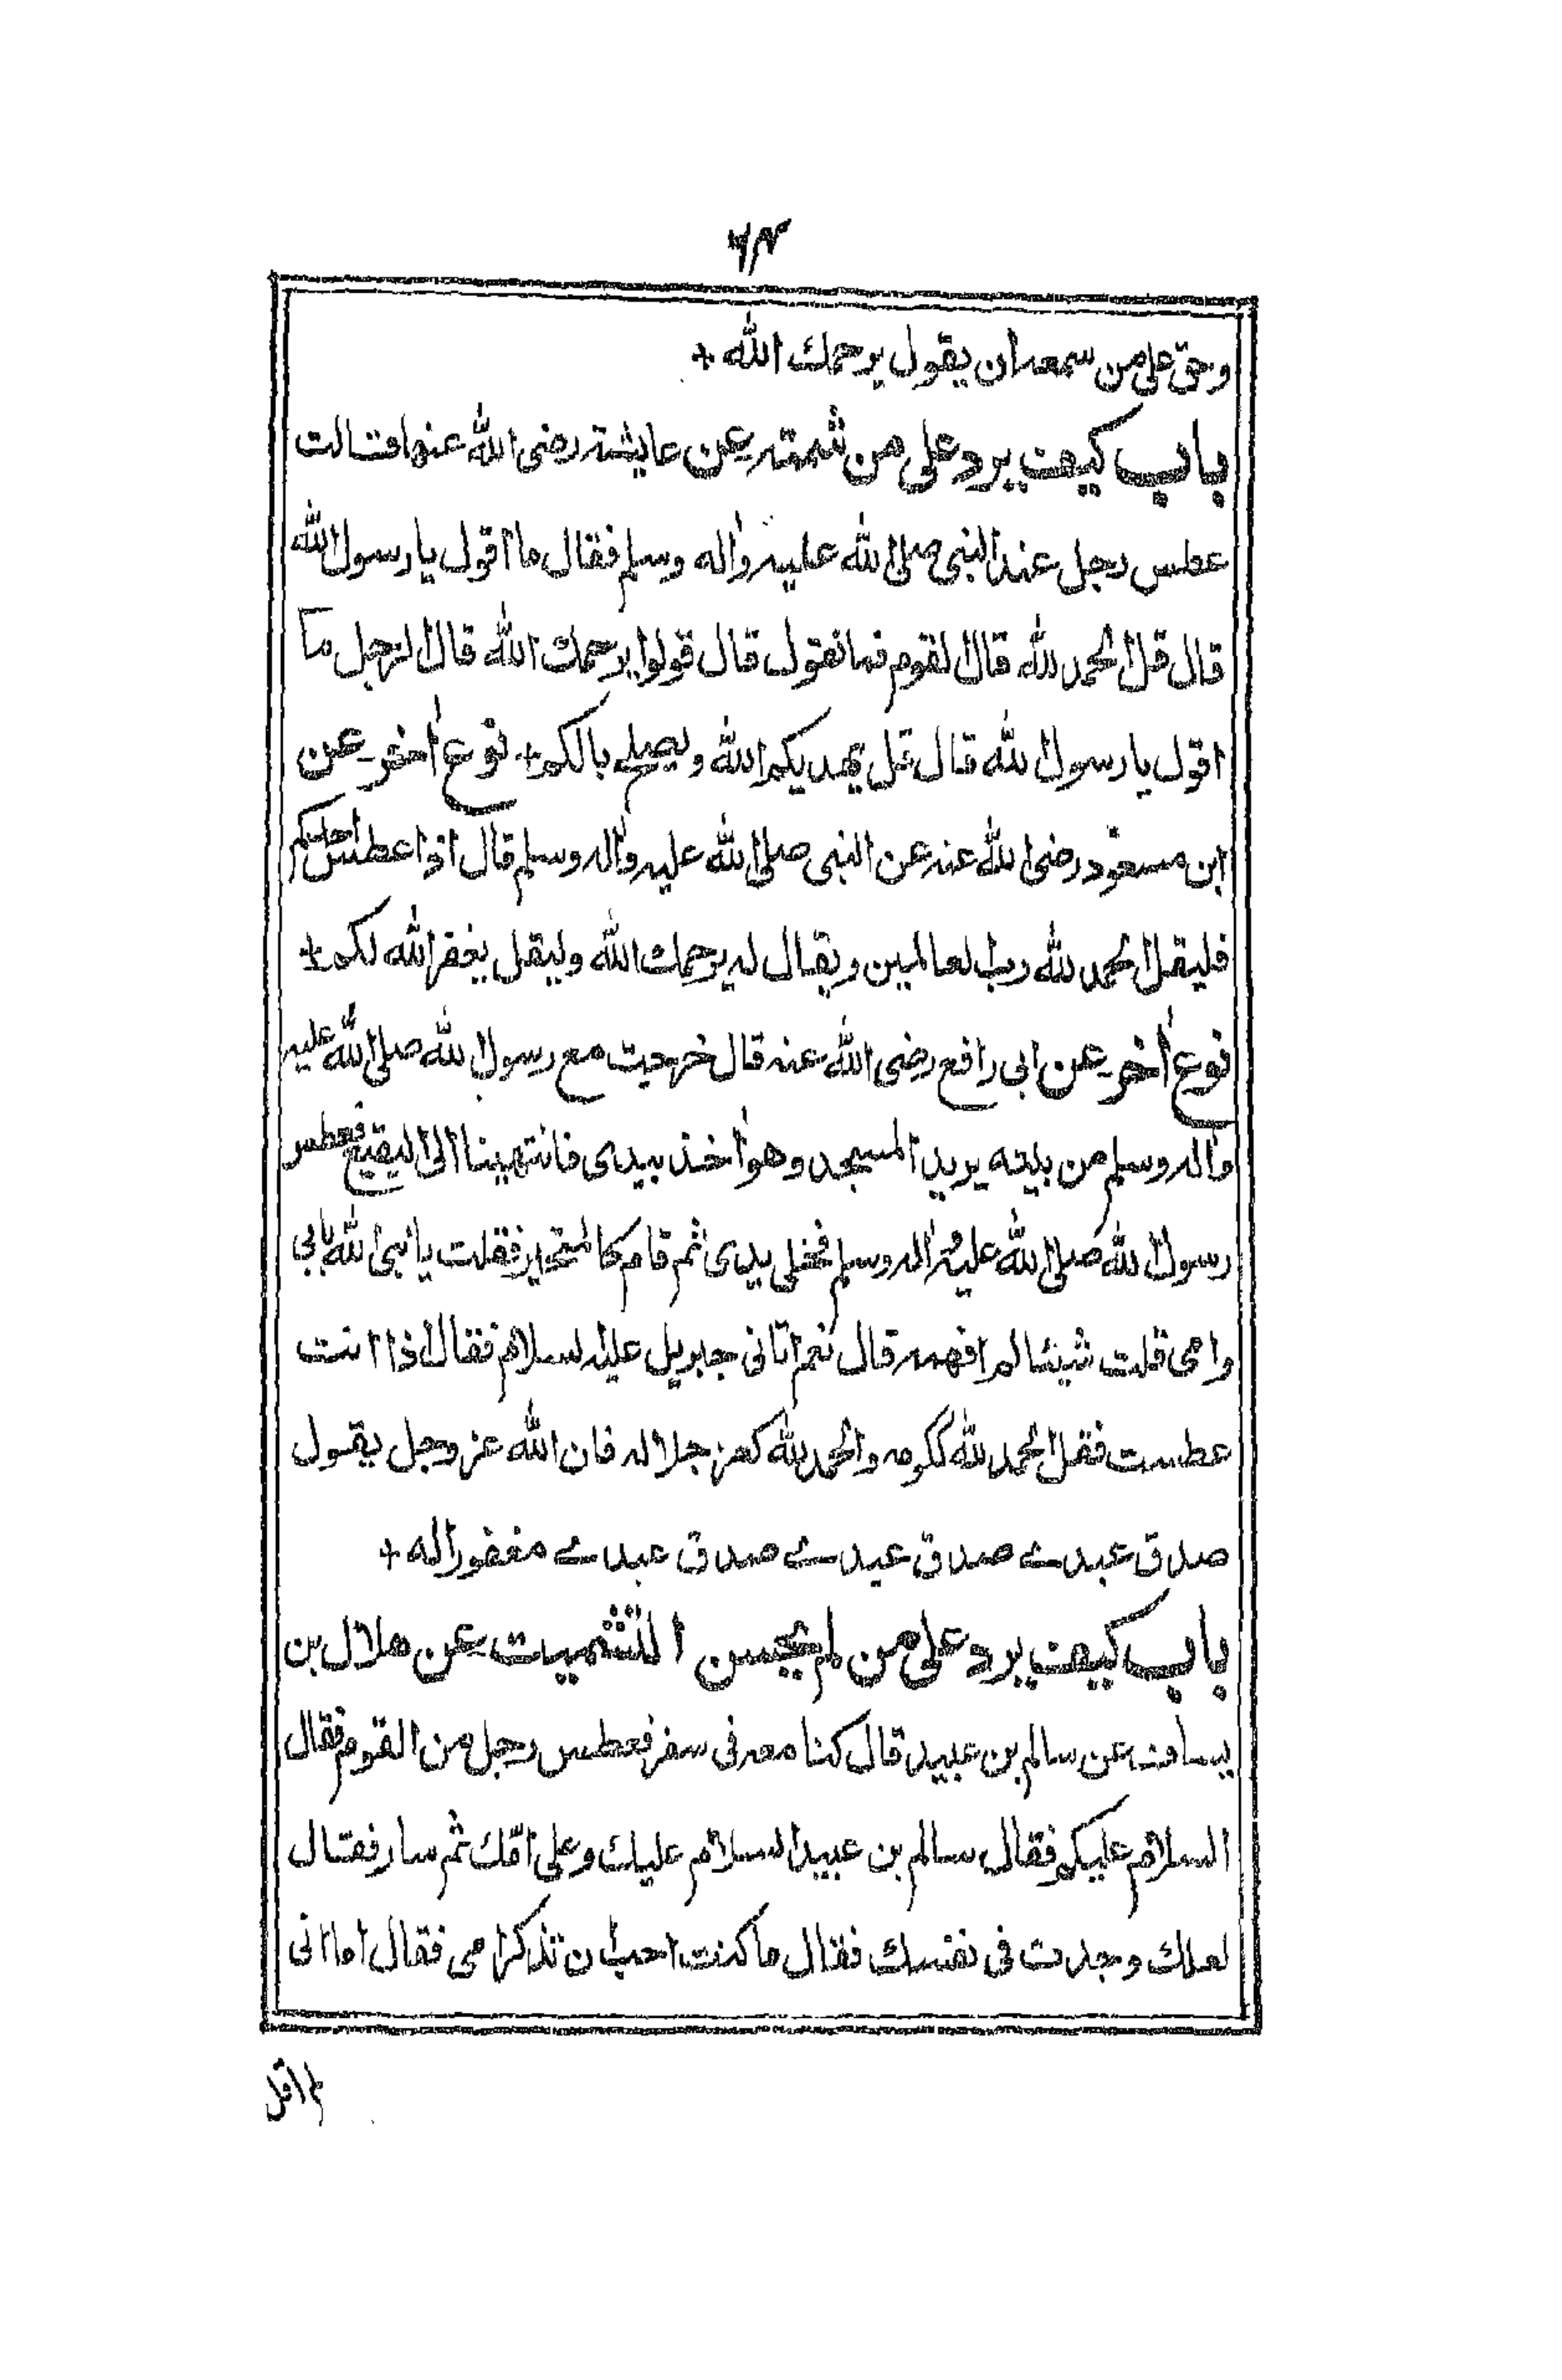 ٦٤
وحق على من سمعه ان يقول يرحمك الله +
باب كيف يرد على من شمته عن عايشة رضى الله عنها قالت
عطس رجل عند النبى صلى الله عليه واله وسلم فقال ما اقول يا رسول الله
قال قل الحمد لله قال القوم فما نقول قال قولوا يرحمك الله قال الرجل ما
اقول يا رسول الله قال قل يهديكم الله ويصلح بالكم + نوع اخر عن
ابن مسعود رضى الله عنه عن النبى صلى الله عليه واله وسلم قال اذا عطس احدكم
فليقل الحمد لله رب العالمين ويقال له يرحمك الله وليقل يغفر الله لكم +
نوع اخر عن ابى رافع رضى الله عنه قال خرجت مع رسول الله صلى الله عليه
واله وسلم من بيته يريد المسجد وهو اخذ بيدى فانتهينا الى البقيع فعطس
رسول الله صلى الله عليه واله وسلم فخلى يدى ثم قام كالمتحير فقلت يا نبى الله بابى
وامى قلت شيئا لم افهمه قال نعم اتانى جبريل عليه السلام فقال اذا انت
عطست فقل الحمد لله ككرمه والحمد لله كعز جلاله فان الله عز وجل يقول
صدق عبدے صدق عبدے صدق عبدے مغفورا له +
باب كيف يرد على من لم يحسن التشميت عن هلال بن
يساف عن سالم بن عبيد قال كنا معه فى سفر فعطس رجل من القوم فقال
السلام عليكم فقال سالم بن عبيد السلام عليك وعلى امّك ثم سار فقال
لعلك وجدت فى نفسك فقال ما كنت احب ان تذكر امى فقال اما انى
لم اقل